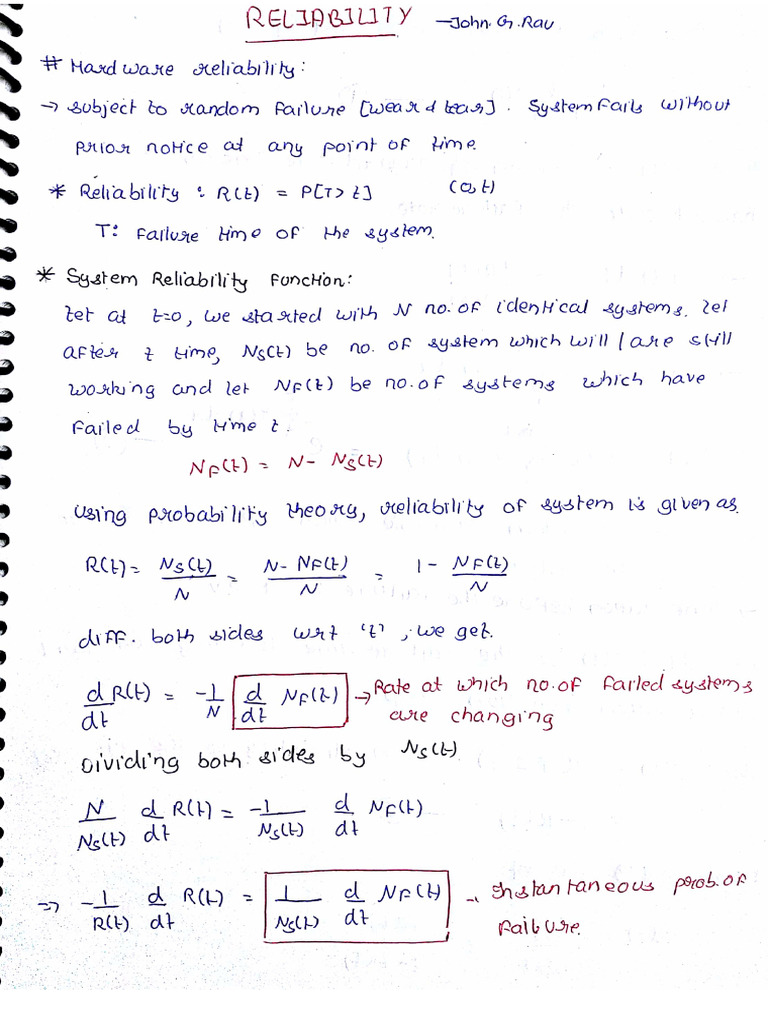 RELIABILITY - John. G. Rau
# Hardware reliability:
→ subject to random failure [wear & tear]. System fails without
prior notice at any point of time.
* Reliability : R(t) = P[T> t] (0,t)
T: failure time of the system.
* System Reliability Function:
Let at t=0, we started with N no. of identical systems. Let
after t time, Ns(t) be no. of system which will / are still
working and let NF(t) be no. of systems which have
failed by time t.
NF(t) = N- Ns(t)
using probability theory, reliability of system is given as
R(t) = Ns(t)/N = N- NF(t)/N = 1 - NF(t)/N
diff. both sides wrt 't', we get.
d/dt R(t) = -1/N d/dt NF(t) → Rate at which no. of failed systems
are changing
Dividing both sides by Ns(t)
N/Ns(t) d/dt R(t) = -1/Ns(t) d/dt NF(t)
=> -1/R(t) d/dt R(t) = 1/Ns(t) d/dt NF(t) → Instantaneous prob. of
failure.